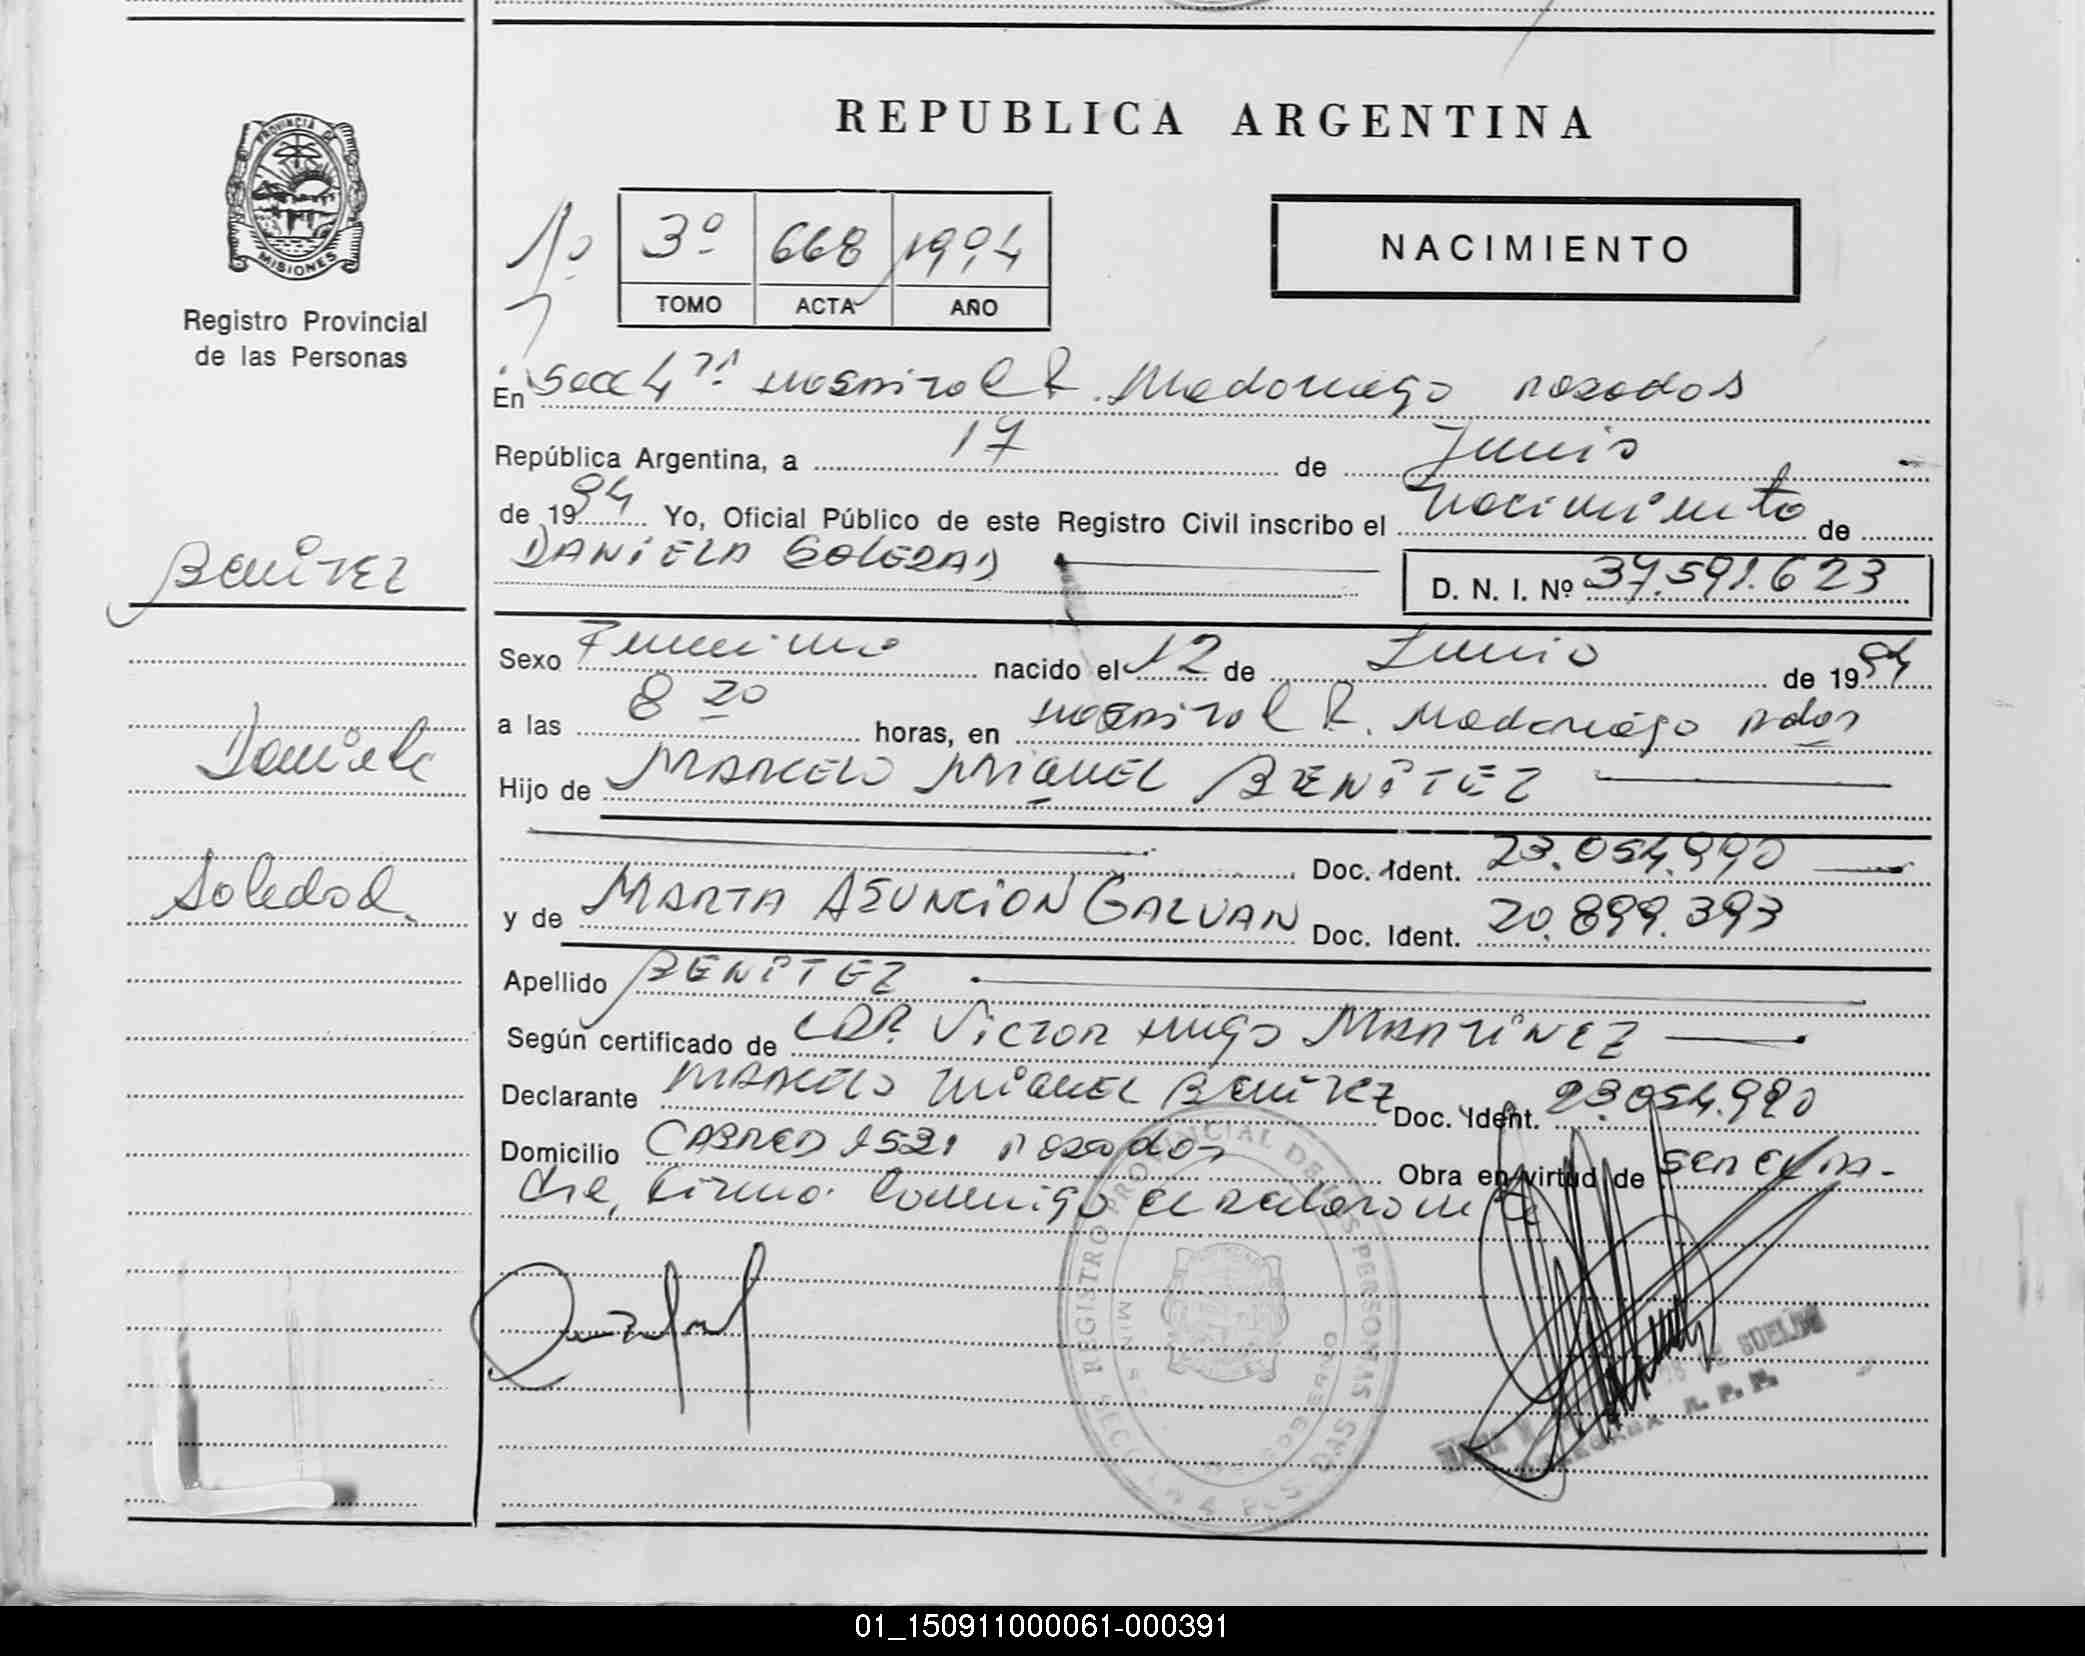 REPUBLICA ARGENTINA
PROVINCIA DE
MISIONES
Registro Provincial
de las Personas
3º 668 1994
TOMO ACTA AÑO
NACIMIENTO
En Secc 4ta Hospital R. Madariaga Posadas
República Argentina, a 17 de Junio
de 1994 Yo, Oficial Público de este Registro Civil inscribo el nacimiento de
DANIELA SOLEDAD D. N. I. Nº 37.591.623
Benitez
Sexo Femenino nacido el 12 de Junio de 1994
a las 8 20 horas, en Hospital R. Madariaga Pdas
Daniela
Hijo de MARCELO MIGUEL BENITEZ
Doc. Ident. 23.054.990
Soledad
y de MARTA ASUNCION GALVAN Doc. Ident. 20.899.393
Apellido BENITEZ
Según certificado de DR. Victor Hugo MARTINEZ
Declarante MARCELO MIGUEL BENITEZ Doc. Ident. 23.054.990
Domicilio CABRED Posadas Obra en virtud de ser el pa-
dre, firma conmigo el declarante
REGISTRO PROVINCIAL DE LAS PERSONAS
01_150911000061-000391